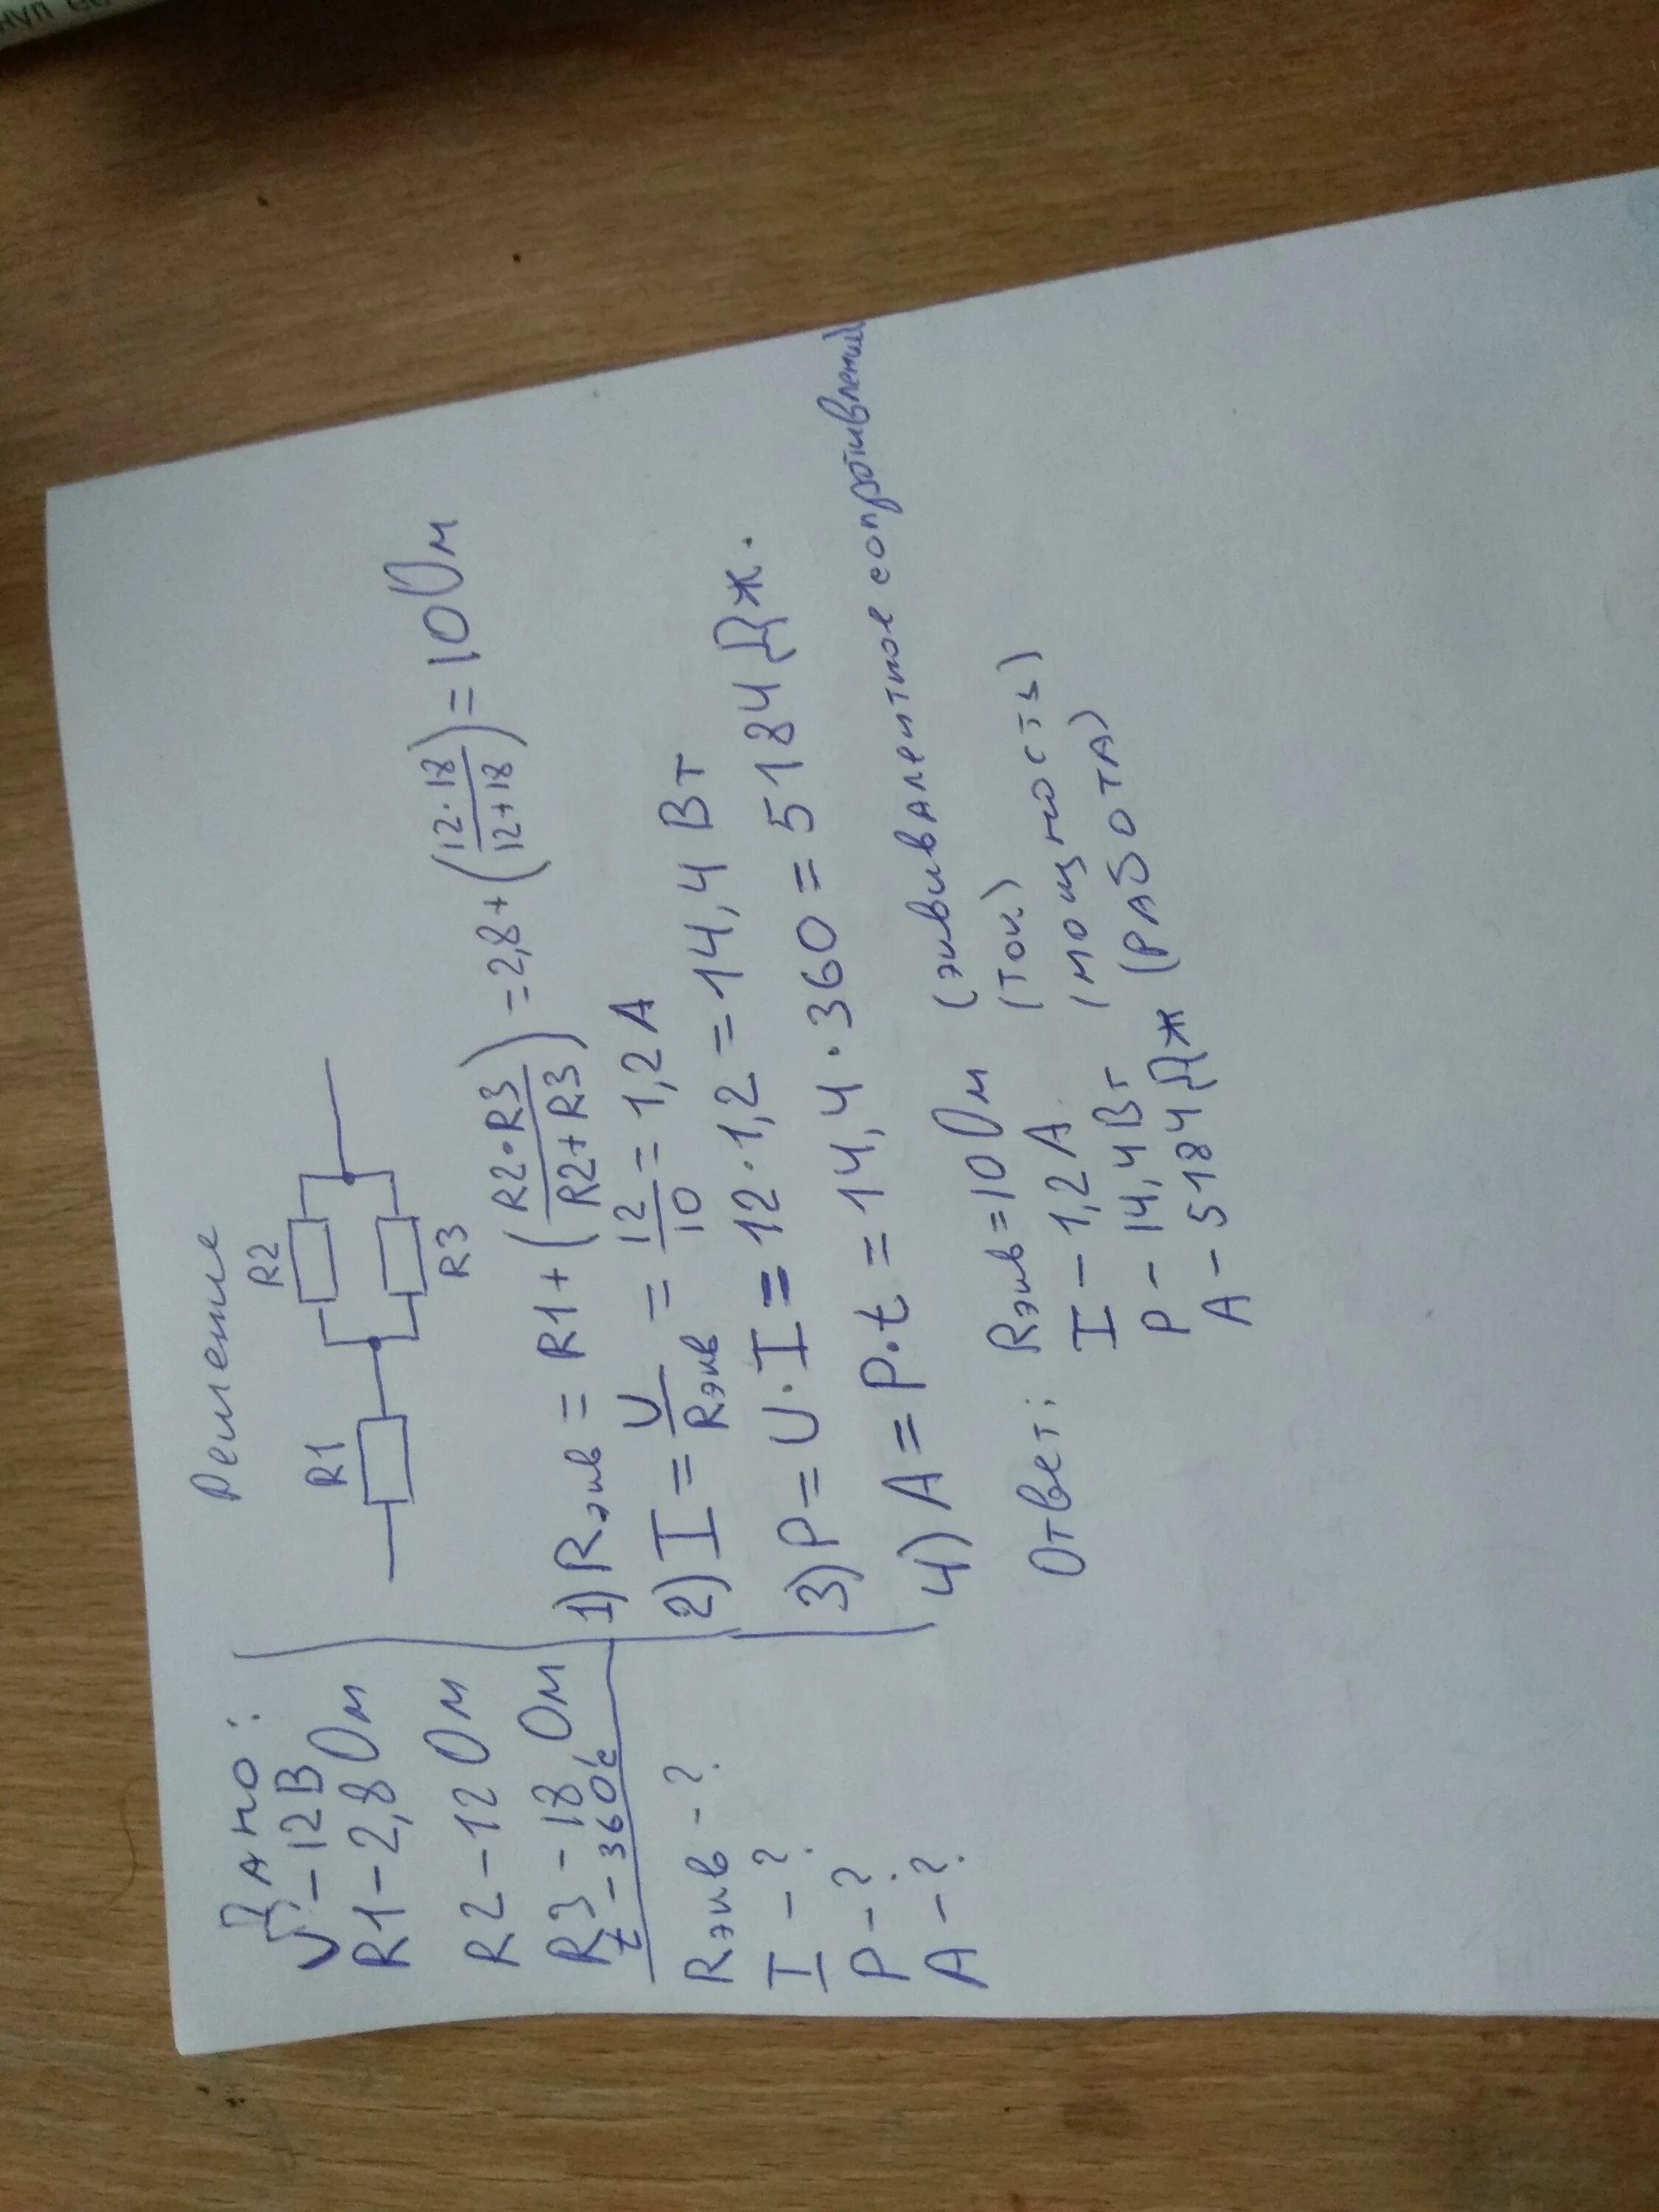 Дано:
U – 12В
R1 – 2,8 Ом
R2 – 12 Ом
R3 – 18 Ом
t – 360с
Rэкв – ?
I – ?
P – ?
A – ?
Решение
R1
R2
R3
1) Rэкв = R1 + (R2·R3/R2+R3) = 2,8 + (12·18/12+18) = 10 Ом
2) I = U/Rэкв = 12/10 = 1,2 А
3) P = U·I = 12·1,2 = 14,4 Вт
4) A = P·t = 14,4·360 = 5184 Дж.
Ответ: Rэкв = 10 Ом (эквивалентное сопротивление)
I – 1,2 А (ток)
P – 14,4 Вт (мощность)
A – 5184 Дж (работа)